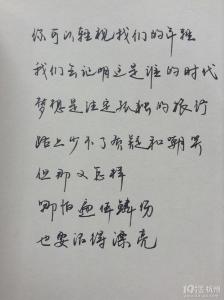 你可以轻视我们的年轻
我们会证明这是谁的时代
梦想是注定孤独的旅行
路上少不了质疑和嘲笑
但那又怎样
哪怕遍体鳞伤
也要活得漂亮
19楼杭州